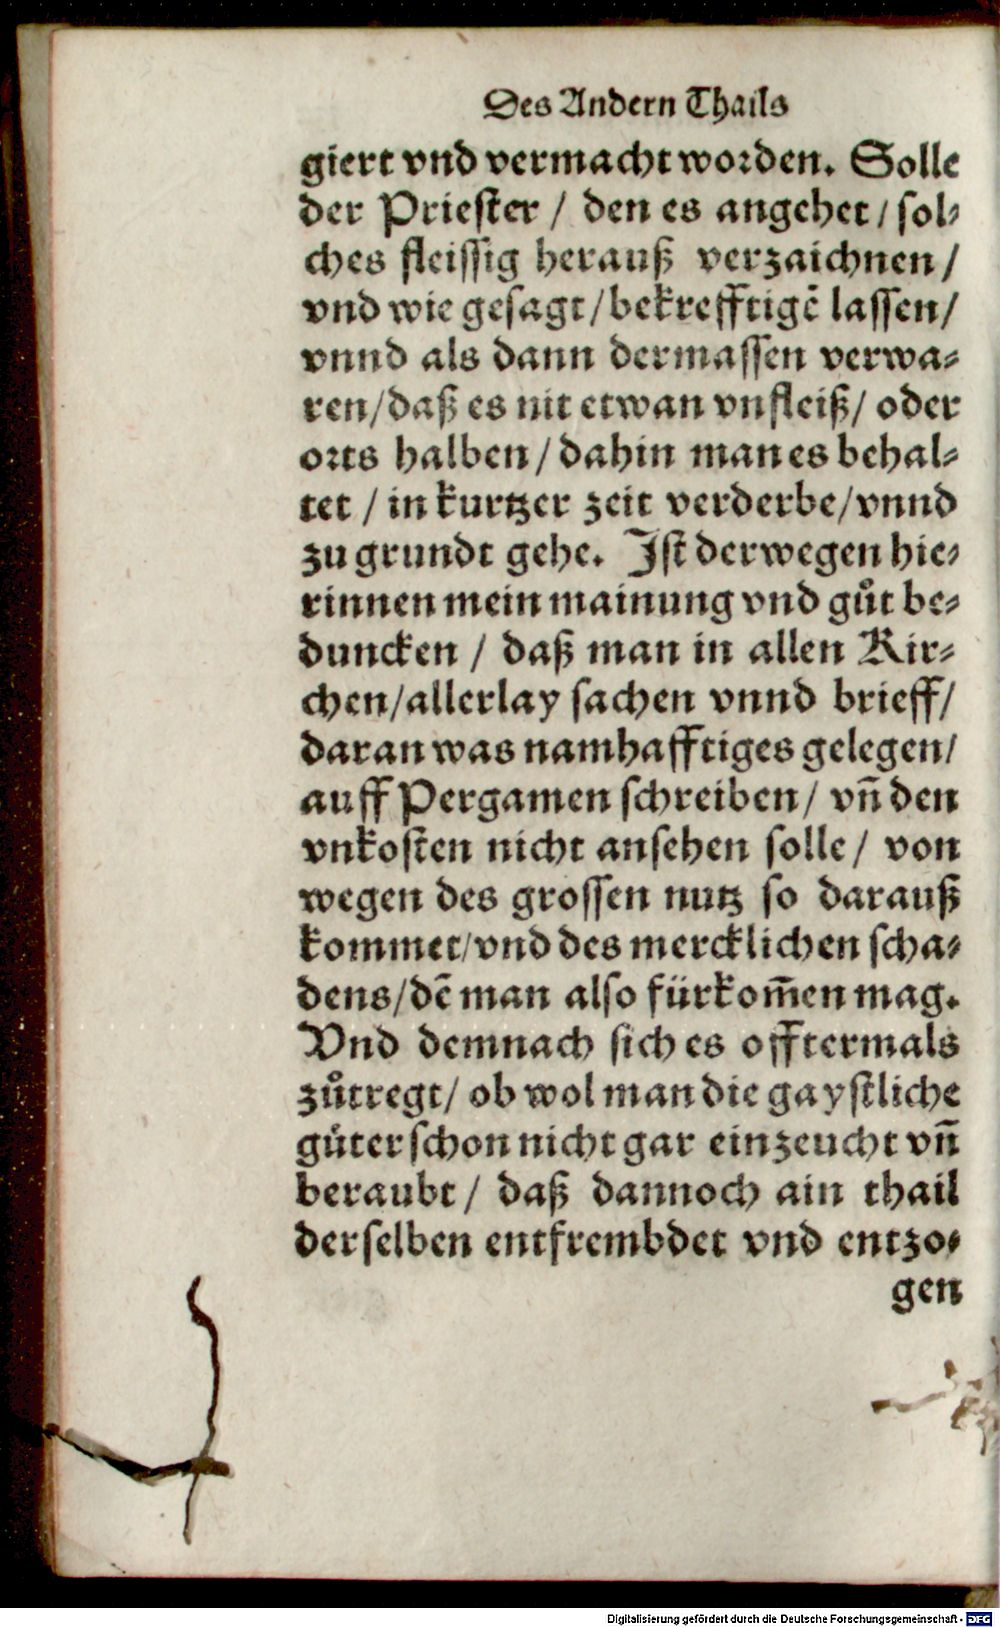 Des Andern Thails
giert vnd vermacht worden. Solle
der Priester / den es angehet / sol-
ches fleissig herauß verzaichnen /
vnd wie gesagt / bekrefftigē lassen /
vnnd als dann dermassen verwa-
ren / daß es nit etwan vnfleiß / oder
orts halben / dahin man es behal-
tet / in kurtzer zeit verderbe / vnnd
zu grundt gehe. Ist derwegen hie-
rinnen mein mainung vnd gůt be-
duncken / daß man in allen Kir-
chen / allerlay sachen vnnd brieff /
daran was namhafftiges gelegen /
auff Pergamen schreiben / vñ den
vnkosten nicht ansehen solle / von
wegen des grossen nutz so darauß
kommet / vnd des mercklichen scha-
dens / dē man also fürkom̄en mag.
Vnd demnach sich es offtermals
zůtregt / ob wol man die gaystliche
güter schon nicht gar einzeucht vñ
beraubt / daß dannoch ain thail
derselben entfrembdet vnd entzo-
gen
Digitalisierung gefördert durch die Deutsche Forschungsgemeinschaft - DFG